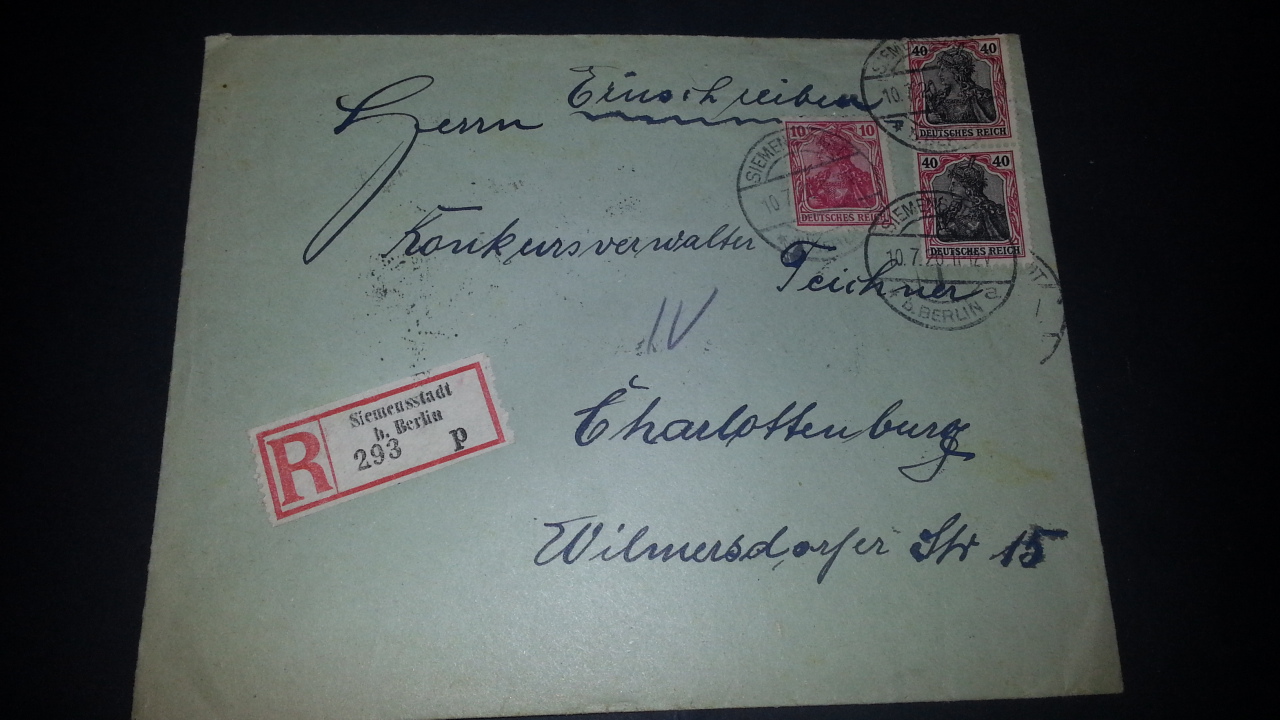 Einschreiben
Herrn
Konkursverwalter
Teichner
IV
Charlottenburg
Wilmersdorfer Str 15
R
Siemensstadt
b. Berlin
293 p
40 40
DEUTSCHES REICH
10 10
DEUTSCHES REICH
40 40
DEUTSCHES REICH
SIEMEN
10.7
SIEMEN
10.7.20 11-12V
a
b. BERLIN